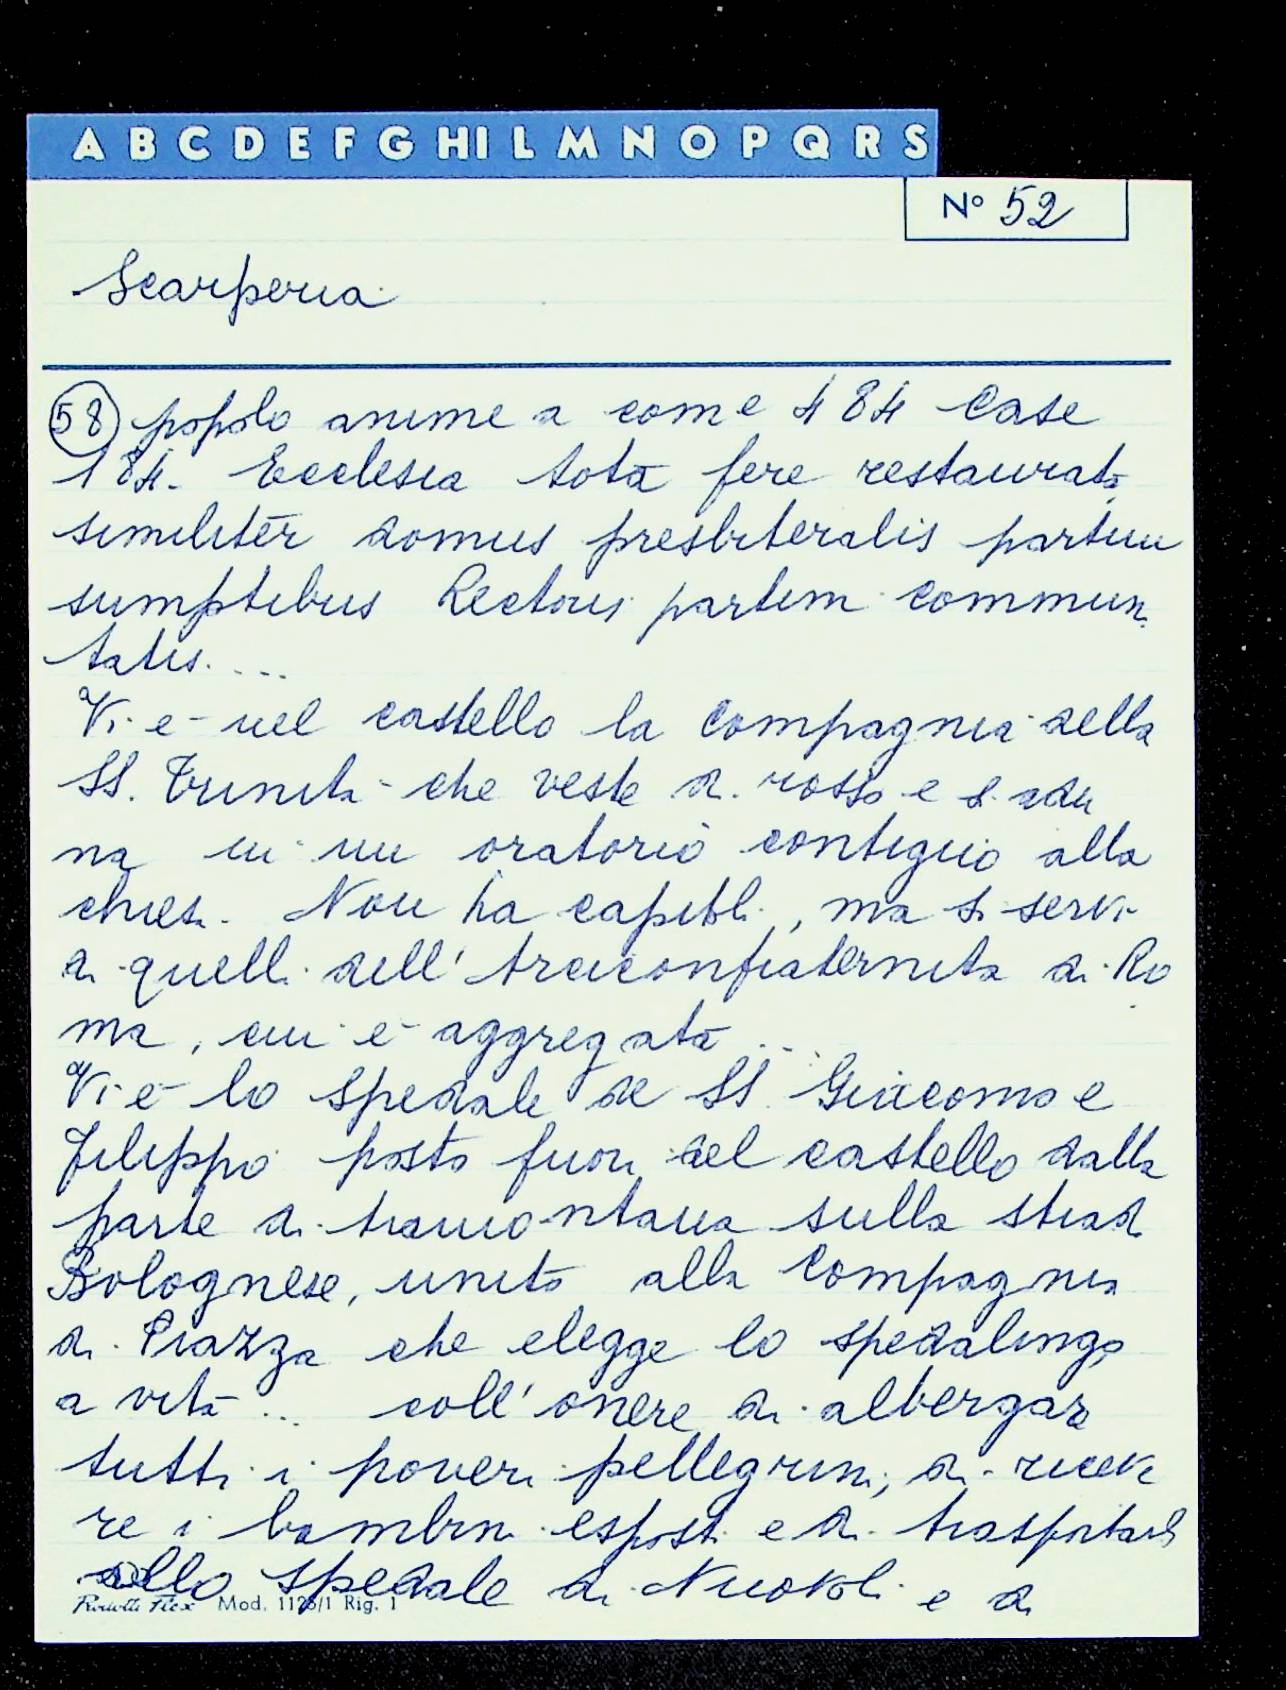 A B C D E F G H I L M N O P Q R S
N° 52
Scarperia
58 popolo anime a come 484 Case
184. Ecclesia tota fere restaurata
similiter domus presbiteralis partim
sumptibus Rectoris partim communi
tatis....
Vi è nel castello la Compagnia della
SS. Trinità che veste di rosso e si adu
na in un oratorio contiguo alla
chiesa. Non ha capitoli, ma si serve
di quelli dell'Arciconfraternita di Ro
ma, cui è aggregata ...
Vi è lo Spedale de SS. Giacomo e
Filippo posto fuori del castello dalla
parte di tramontana sulla strada
Bolognese, unito alla Compagnia
di Piazza che elegge lo spedalingo
a vita ... coll'onere di albergare
tutti i poveri pellegrini, di riceve
re i bambini esposti e di trasportarli
allo spedale di Nuovoli e di
Mod. 1126/1 Rig. 1